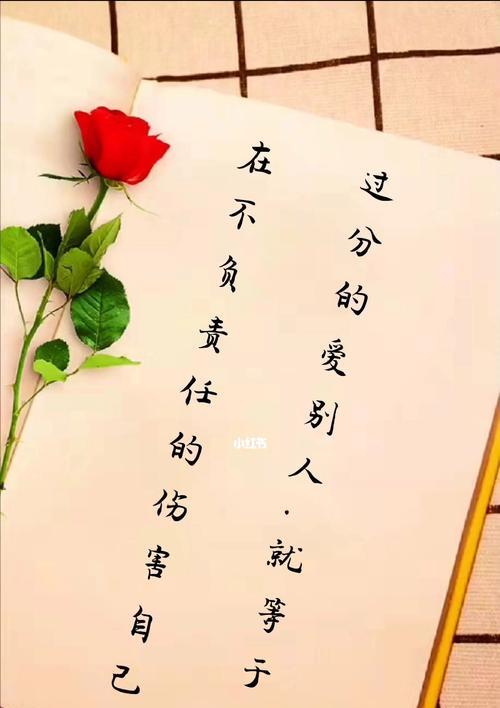 过分的爱别人.就等于
在不负责任的伤害自己
小红书